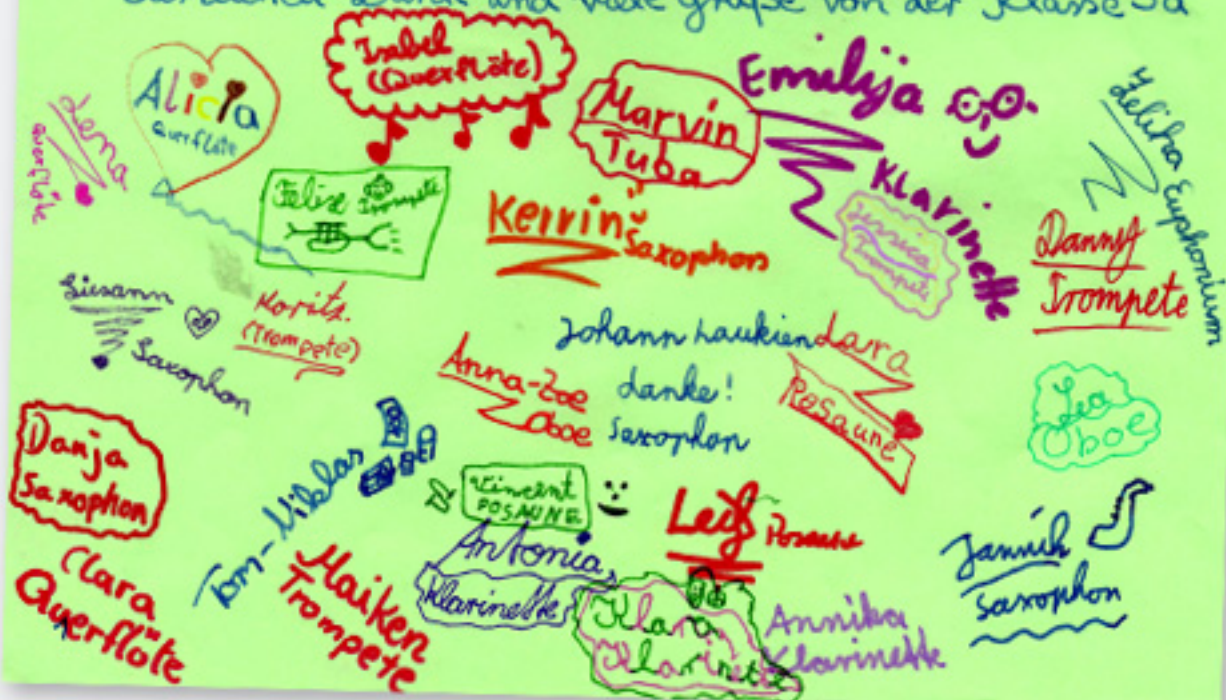 und viele Grüße von der Klasse 5a
Isabel
(Querflöte)
Emilija
Klarinette
Alicia
Querflöte
Marvin
Tuba
Lena
Querflöte
Zeliha Euphonium
Felix Trompete
Kerrin
Saxophon
Jessica
Trompete
Danny
Trompete
Susann
Saxophon
Moritz
(Trompete)
Johann Laukien
danke!
Saxophon
Lara
Posaune
Anna-Zoe
Oboe
Lea
Oboe
Danja
Saxophon
Tom-Niklas
Vincent
POSAUNE
Leif Posaune
Jannik
Saxophon
Antonia
Klarinette
Clara
Querflöte
Maiken
Trompete
Klara
Klarinette
Annika
Klarinette